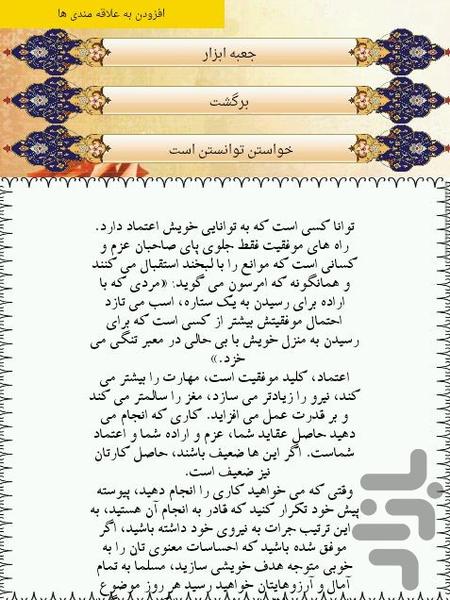 افزودن به علاقه مندی ها
جعبه ابزار
برگشت
خواستن توانستن است
توانا کسی است که به توانایی خویش اعتماد دارد.
راه های موفقیت فقط جلوی پای صاحبان عزم و
کسانی است که موانع را با لبخند استقبال می کنند
و همانگونه که امرسون می گوید: «مردی که با
اراده برای رسیدن به یک ستاره، اسب می تازد
احتمال موفقیتش بیشتر از کسی است که برای
رسیدن به منزل خویش با بی حالی در معبر تنگی می
خزد.»
اعتماد، کلید موفقیت است، مهارت را بیشتر می
کند، نیرو را زیادتر می سازد، مغز را سالمتر می کند
و بر قدرت عمل می افزاید. کاری که انجام می
دهید حاصل عقاید شما، عزم و اراده شما و اعتماد
شماست. اگر این ها ضعیف باشند، حاصل کارتان
نیز ضعیف است.
وقتی که می خواهید کاری را انجام دهید، پیوسته
پیش خود تکرار کنید که قادر به انجام آن هستید، به
این ترتیب جرات به نیروی خود داشته باشید، اگر
موفق شده باشید که احساسات معنوی تان را به
خوبی متوجه هدف خویشی سازید، مسلما به تمام
آمال و آرزوهایتان خواهید رسید هر روز موضوع
بازار